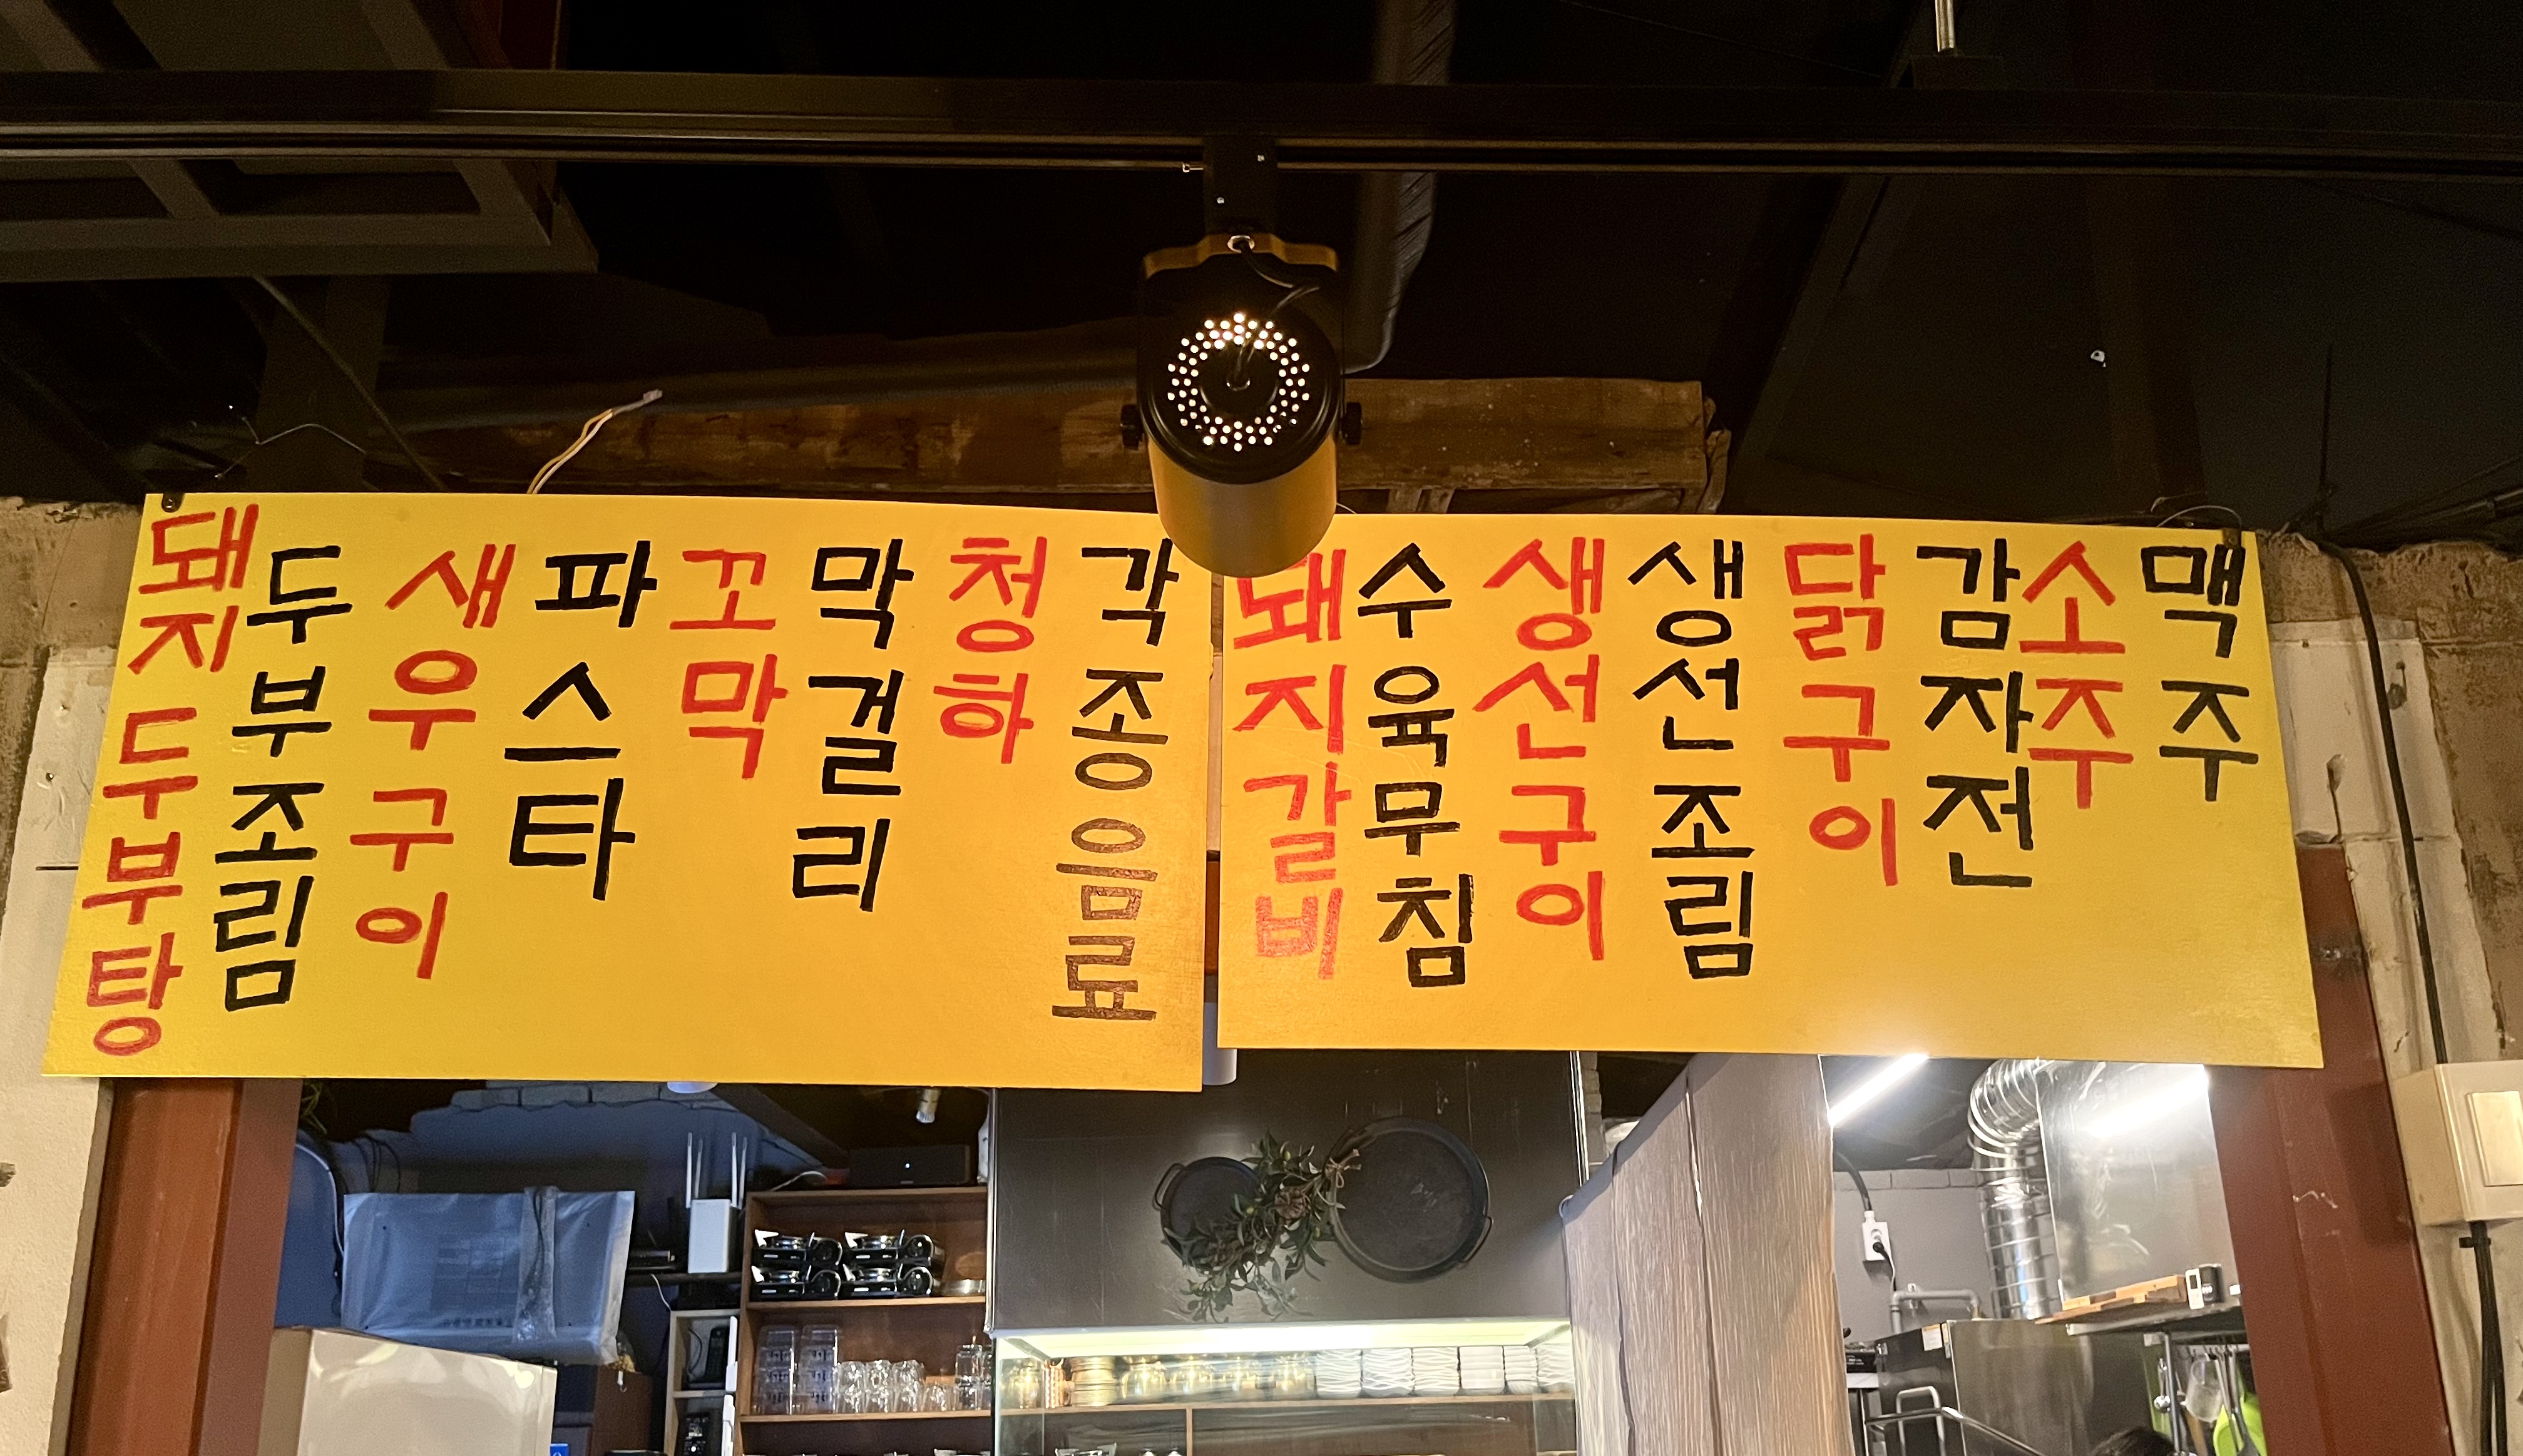 돼지두부탕
두부조림
새우구이
파스타
꼬막
막걸리
청하
각종음료
돼지갈비
수육무침
생선구이
생선조림
닭구이
감자전
소주
맥주